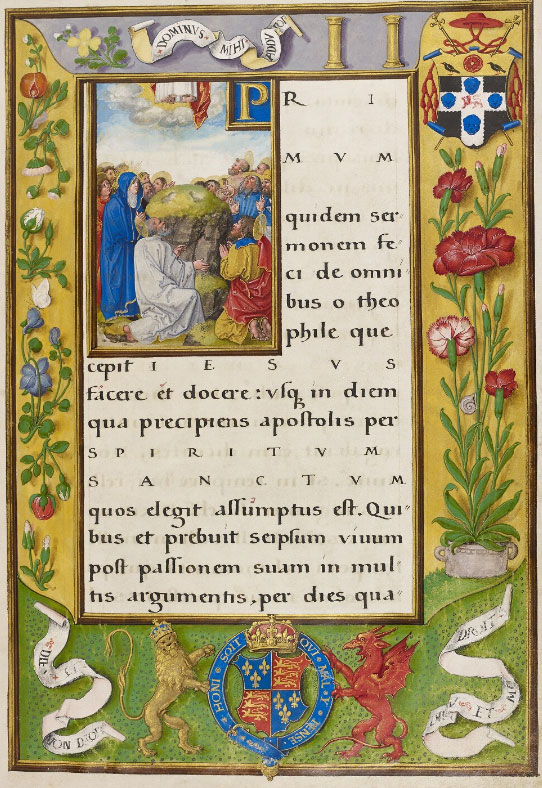 DOMINVS MIHI ADIVTOR
P R I
M V M
quidem ser-
monem fe-
ci de omni
bus o theo
phile que
cepit I E S V S
facere et docere : vsq in diem
qua precipiens apostolis per
S P I R I T V M
S A N C T V M
quos elegit assumptus est. Qui-
bus et prebuit seipsum viuum
post passionem suam in mul-
tis argumentis, per dies qua-
HONI SOIT QVI MAL Y PENSE
MON DROI
DROIT
ET